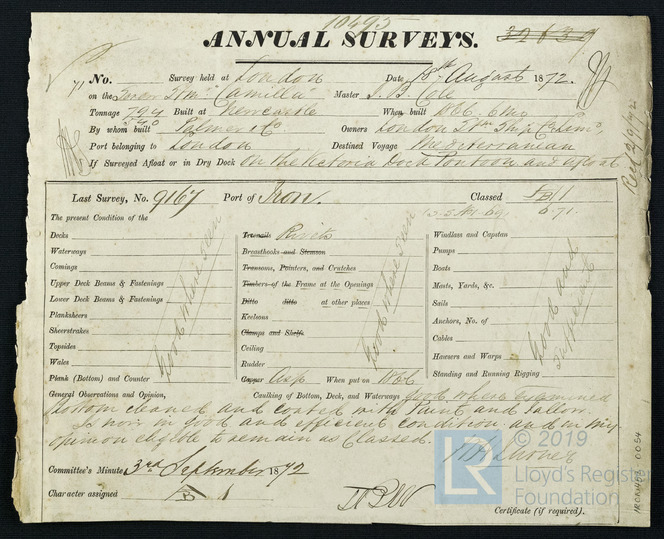 10495
ANNUAL SURVEYS. 32639
71 No. Survey held at London Date 18th August 1872.
on the Screw Str "Camilla" Master J. B. Cole
Tonnage 794 Built at Newcastle When built 1866. 6mo
590
By whom built Palmer & Co Owners London Stm Ship Co Lim,
Port belonging to London Destined Voyage Mediterranean
If Surveyed Afloat or in Dry Dock On the Victoria Dock Pontoon and afloat
Recd 2/9/72
Last Survey, No. 9167 Port of Iron. Classed B 1
6.71.
The present Condition of the
Decks
Waterways
Comings
Upper Deck Beams & Fastenings
Lower Deck Beams & Fastenings
Planksheers
Sheerstrakes
Topsides
Wales
Plank (Bottom) and Counter
Good where seen
Treenails Rivets
Breasthooks and Stemson
Transoms, Pointers, and Crutches
Timbers of the Frame at the Openings
Ditto ditto at other places
Keelsons
Clamps and Shelfs
Ceiling
Rudder
Copper Asp When put on 1866
Good where seen
Windlass and Capstan
Pumps
Boats
Masts, Yards, &c.
Sails
Anchors, No. of
Cables
Hawsers and Warps
Standing and Running Rigging
Good and
sufficient
General Observations and Opinion, Caulking of Bottom, Deck, and Waterways Good where examined
Bottom cleaned and coated with Paint and Tallow.
Is now in good and efficient condition and in my
opinion eligible to remain as Classed.
Committee's Minute 3rd September 1872
Character assigned B 1
Certificate (if required).
LR © 2019
Lloyd's Register
Foundation
IRON406-0054